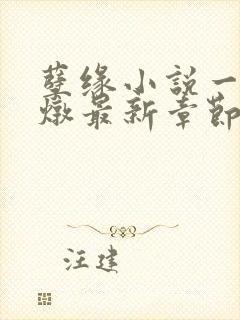 孽缘小说一
燉最新章節
汪建